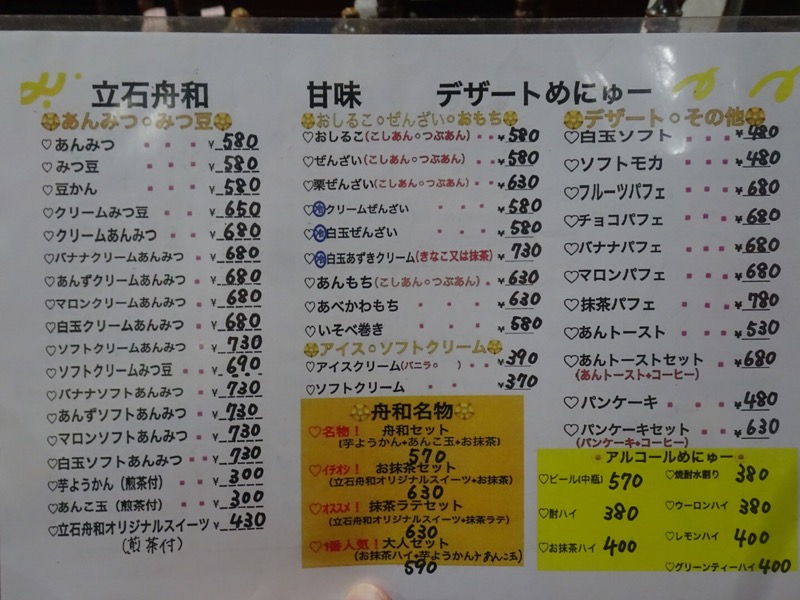 立石舟和　甘味　デザートめにゅー
あんみつ○みつ豆
♡あんみつ ・・・ ¥580
♡みつ豆 ・・・ ¥580
♡豆かん ・・・ ¥580
♡クリームみつ豆 ・・ ¥650
♡クリームあんみつ ・・ ¥680
♡バナナクリームあんみつ ・ ¥680
♡あんずクリームあんみつ ・ ¥680
♡マロンクリームあんみつ ・ ¥680
♡白玉クリームあんみつ ・ ¥680
♡ソフトクリームあんみつ ・ ¥730
♡ソフトクリームみつ豆 ・ ¥690
♡バナナソフトあんみつ ・ ¥730
♡あんずソフトあんみつ ・ ¥730
♡マロンソフトあんみつ ・ ¥730
♡白玉ソフトあんみつ ・・ ¥730
♡芋ようかん（煎茶付）・・ ¥300
♡あんこ玉（煎茶付）・・ ¥300
♡立石舟和オリジナルスイーツ ¥430
(煎茶付)
おしるこ○ぜんざい○おもち
♡おしるこ(こしあん○つぶあん) ・・ ¥580
♡ぜんざい(こしあん○つぶあん) ・・ ¥580
♡栗ぜんざい(こしあん○つぶあん) ・・ ¥630
♡冷クリームぜんざい ・・・ ¥580
♡冷白玉ぜんざい ・・・ ¥580
♡冷白玉あずきクリーム(きなこ又は抹茶) ¥730
♡あんもち(こしあん○つぶあん) ・ ¥630
♡あべかわもち ・・・ ¥630
♡いそべ巻き ・・・ ¥580
アイス○ソフトクリーム
♡アイスクリーム(バニラ○　) ・・ ¥390
♡ソフトクリーム ・・・ ¥370
舟和名物
♡名物！ 舟和セット
(芋ようかん+あんこ玉+お抹茶)
570
♡イチオシ！ お抹茶セット
(立石舟和オリジナルスイーツ+お抹茶)
630
♡オススメ！ 抹茶ラテセット
(立石舟和オリジナルスイーツ+抹茶ラテ)
630
♡1番人気！大人セット
(お抹茶ハイ+芋ようかん+あんこ玉)
590
デザート○その他
♡白玉ソフト ・・・ ¥480
♡ソフトモカ ・・・ ¥480
♡フルーツパフェ ・・・ ¥680
♡チョコパフェ ・・・ ¥680
♡バナナパフェ ・・・ ¥680
♡マロンパフェ ・・・ ¥680
♡抹茶パフェ ・・・ ¥780
♡あんトースト ・・・ ¥530
♡あんトーストセット ・・ ¥680
(あんトースト+コーヒー)
♡パンケーキ ・・・ ¥480
♡パンケーキセット ・・ ¥630
(パンケーキ+コーヒー)
アルコールめにゅー
♡ビール(中瓶) 570
♡焼酎水割り 380
♡酎ハイ 380
♡ウーロンハイ 380
♡お抹茶ハイ 400
♡レモンハイ 400
♡グリーンティーハイ 400